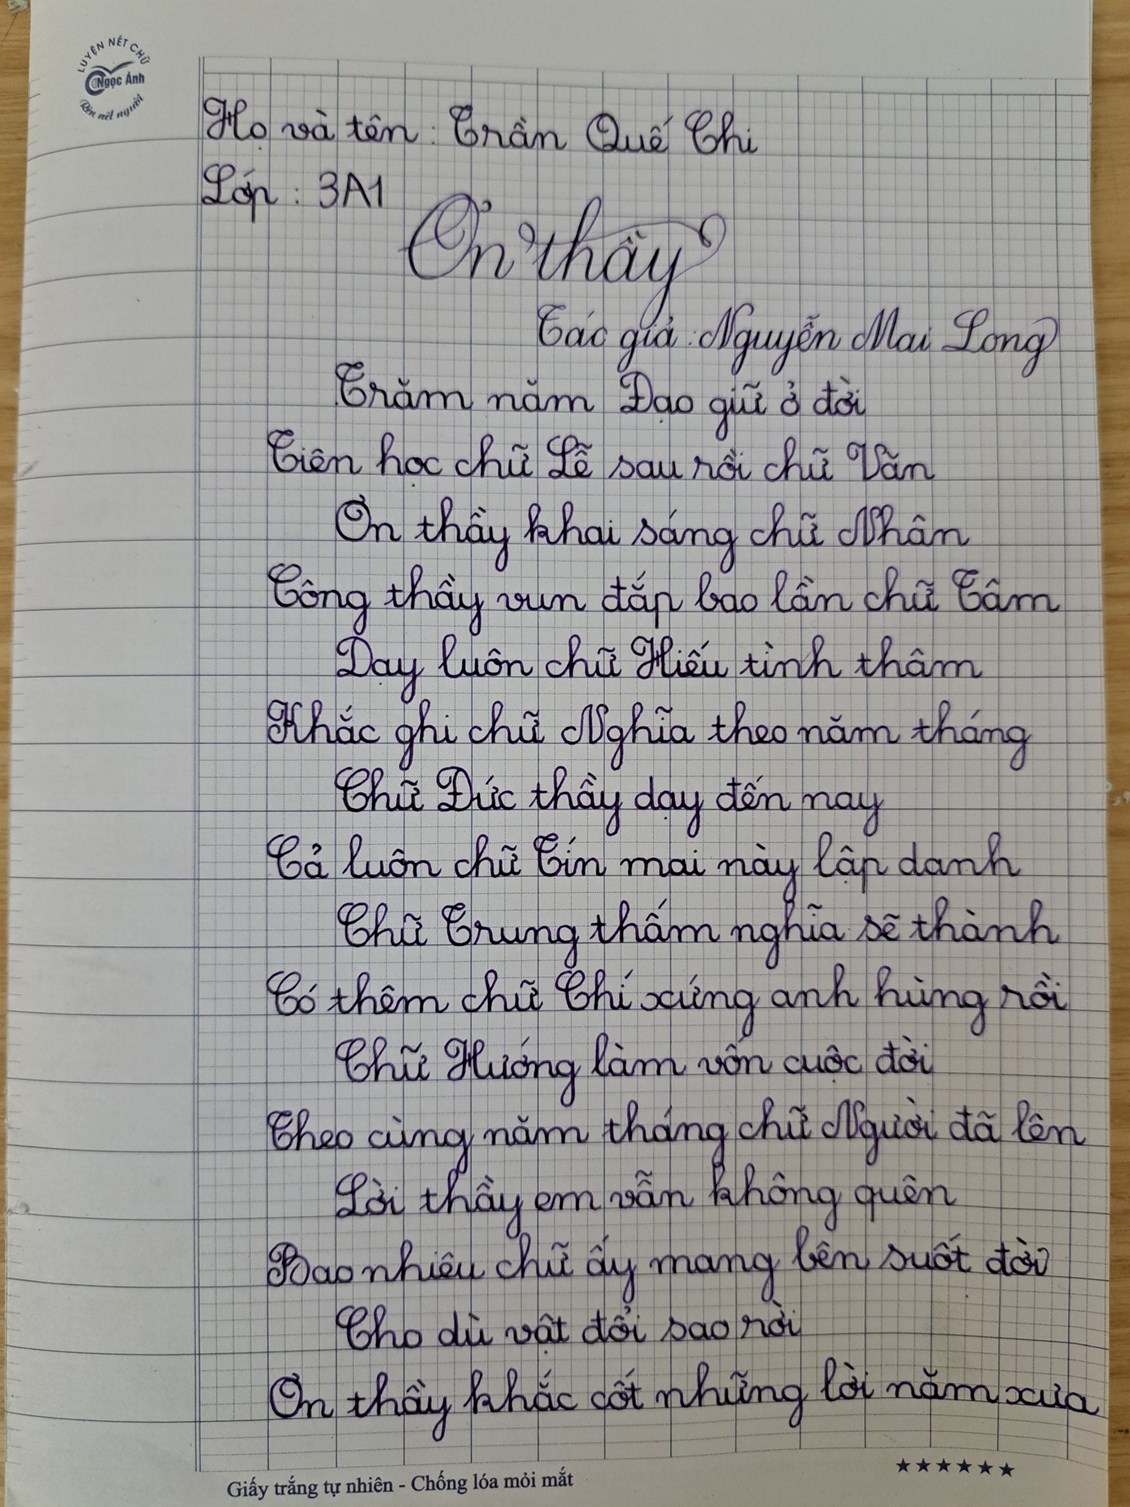 LUYỆN NÉT CHỮ
Ngọc Ánh
Rèn nết người
Họ và tên : Trần Quế Chi
Lớp : 3A1
Ơn thầy
Tác giả : Nguyễn Mai Long
Trăm năm Đạo giữ ở đời
Tiên học chữ Lễ sau rồi chữ Văn
Ơn thầy khai sáng chữ Nhân
Công thầy vun đắp bao lần chữ Tâm
Dạy luôn chữ Hiếu tình thâm
Khắc ghi chữ Nghĩa theo năm tháng
Chữ Đức thầy dạy đến nay
Cả luôn chữ Tín mai này lập danh
Chữ Trung thấm nghĩa sẽ thành
Có thêm chữ Chí xứng anh hùng rồi
Chữ Hướng làm vốn cuộc đời
Theo cùng năm tháng chữ Người đã lên
Lời thầy em vẫn không quên
Bao nhiêu chữ ấy mang bên suốt đời
Cho dù vật đổi sao rời
Ơn thầy khắc cốt những lời năm xưa
Giấy trắng tự nhiên - Chống lóa mỏi mắt